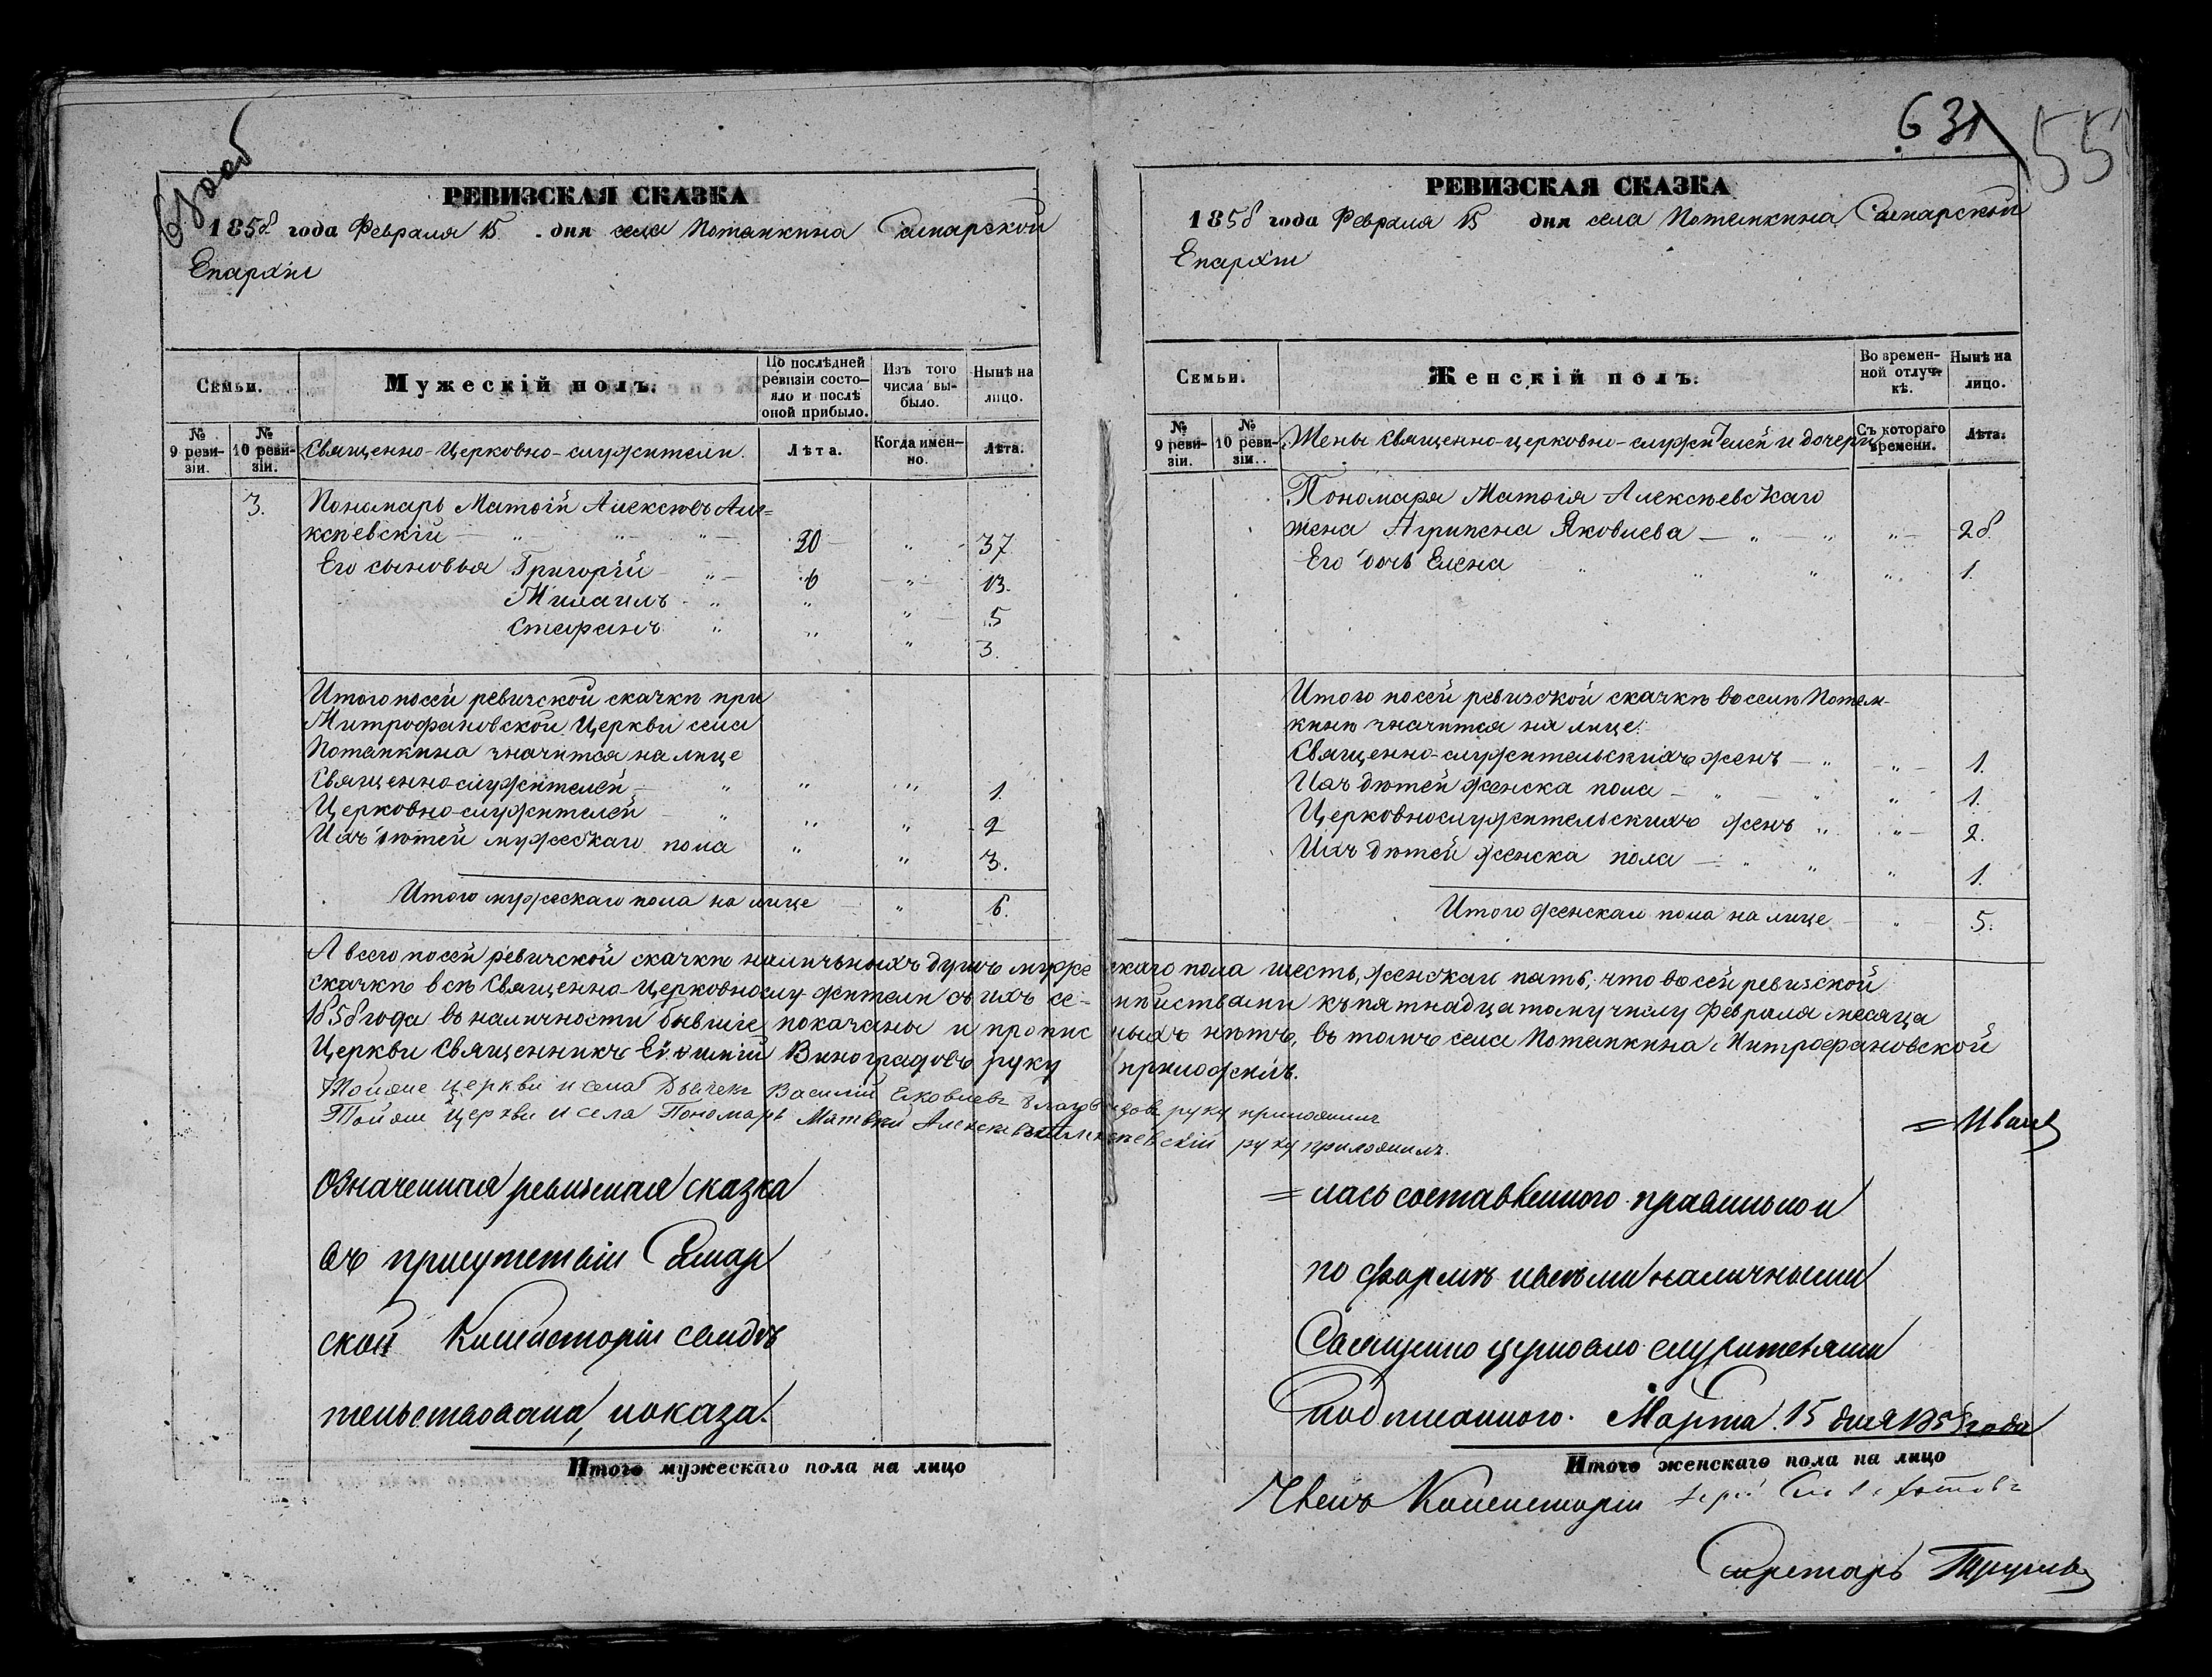 РЕВИЗСКАЯ СКАЗКА
1858 года Февраля 15 дня села Потемкина Самарской
Епархіи
Семьи.
Мужескій полъ.
По послѣдней ревизіи состояло и послѣ оной прибыло.
Изъ того числа выбыло.
Нынѣ на лицо.
№ 9 ревизіи.
№ 10 ревизіи.
Священно-Церковно-служители.
Лѣта.
Когда именно.
Лѣта.
3. Пономарь Матѳій Алексѣевъ Але=
ксѣевскій — " — " — " — 20 " 37
Его сыновья Григорій " 6 " 13.
Михаилъ " " " 5
Стефанъ " " " 3.
Итого по сей ревизской сказкѣ при
Митрофановской Церкви села
Потемкина значится на лице
Священно-служителей " " " 1.
Церковно-служителей " " " 2
Ихъ дѣтей мужескаго пола " " 3.
Итого мужескаго пола на лице " 6.
631
55
РЕВИЗСКАЯ СКАЗКА
1858 года Февраля 15 дня села Потемкина Самарской
Епархіи
Семьи.
Женскій полъ.
Во временной отлучкѣ.
Нынѣ на лицо.
№ 9 ревизіи.
№ 10 ревизіи.
Жены Священно-церковно-служителей и дочери
Съ котораго времени.
Лѣта.
Пономаря Матѳія Алексѣевскаго
жена Агрипена Яковлева — " — " " 28.
Его дочь Елена " " " " 1.
Итого по сей ревизской сказкѣ во селѣ Потем-
кинѣ значится на лице:
Священно-служительскихъ женъ — " " 1.
Ихъ дѣтей женска пола — " " " 1.
Церковнослужительскихъ женъ " " 2.
Ихъ дѣтей женска пола — " " " 1.
Итого женскаго пола на лице " 5.
А всего по сей ревизской сказкѣ наличныхъ душъ мужескаго пола шесть, женскаго пать, что во сей ревизской
сказкѣ всѣ Священно-Церковнослужители съ ихъ семѣйствами къ пятнадцатому числу Февраля месяца
1858 года въ наличности бывшіе показаны и прописныхъ нѣтъ, въ томъ села Потемкина Митрофановской
Церкви Священникъ Евѳимій Виноградовъ руку приложилъ.
Тойже церкви и села Дьячекъ Василій Яковлевъ руку приложилъ
Тойже Церкви и села Пономарь Матвей Алексѣевъ Алексѣевскій руку приложилъ.
Означенная ревизская сказка
въ присутствіи Самар
ской Консисторіи свидѣ
тельствована, и оказа=
=лась составленного правильно и
по формѣ и всѣми наличными
Священно церковно служителями
подписанного. Марта 15 дня 1858 года
Итого мужескаго пола на лицо
Итого женскаго пола на лицо
Членъ Консисторіи
Секретарь